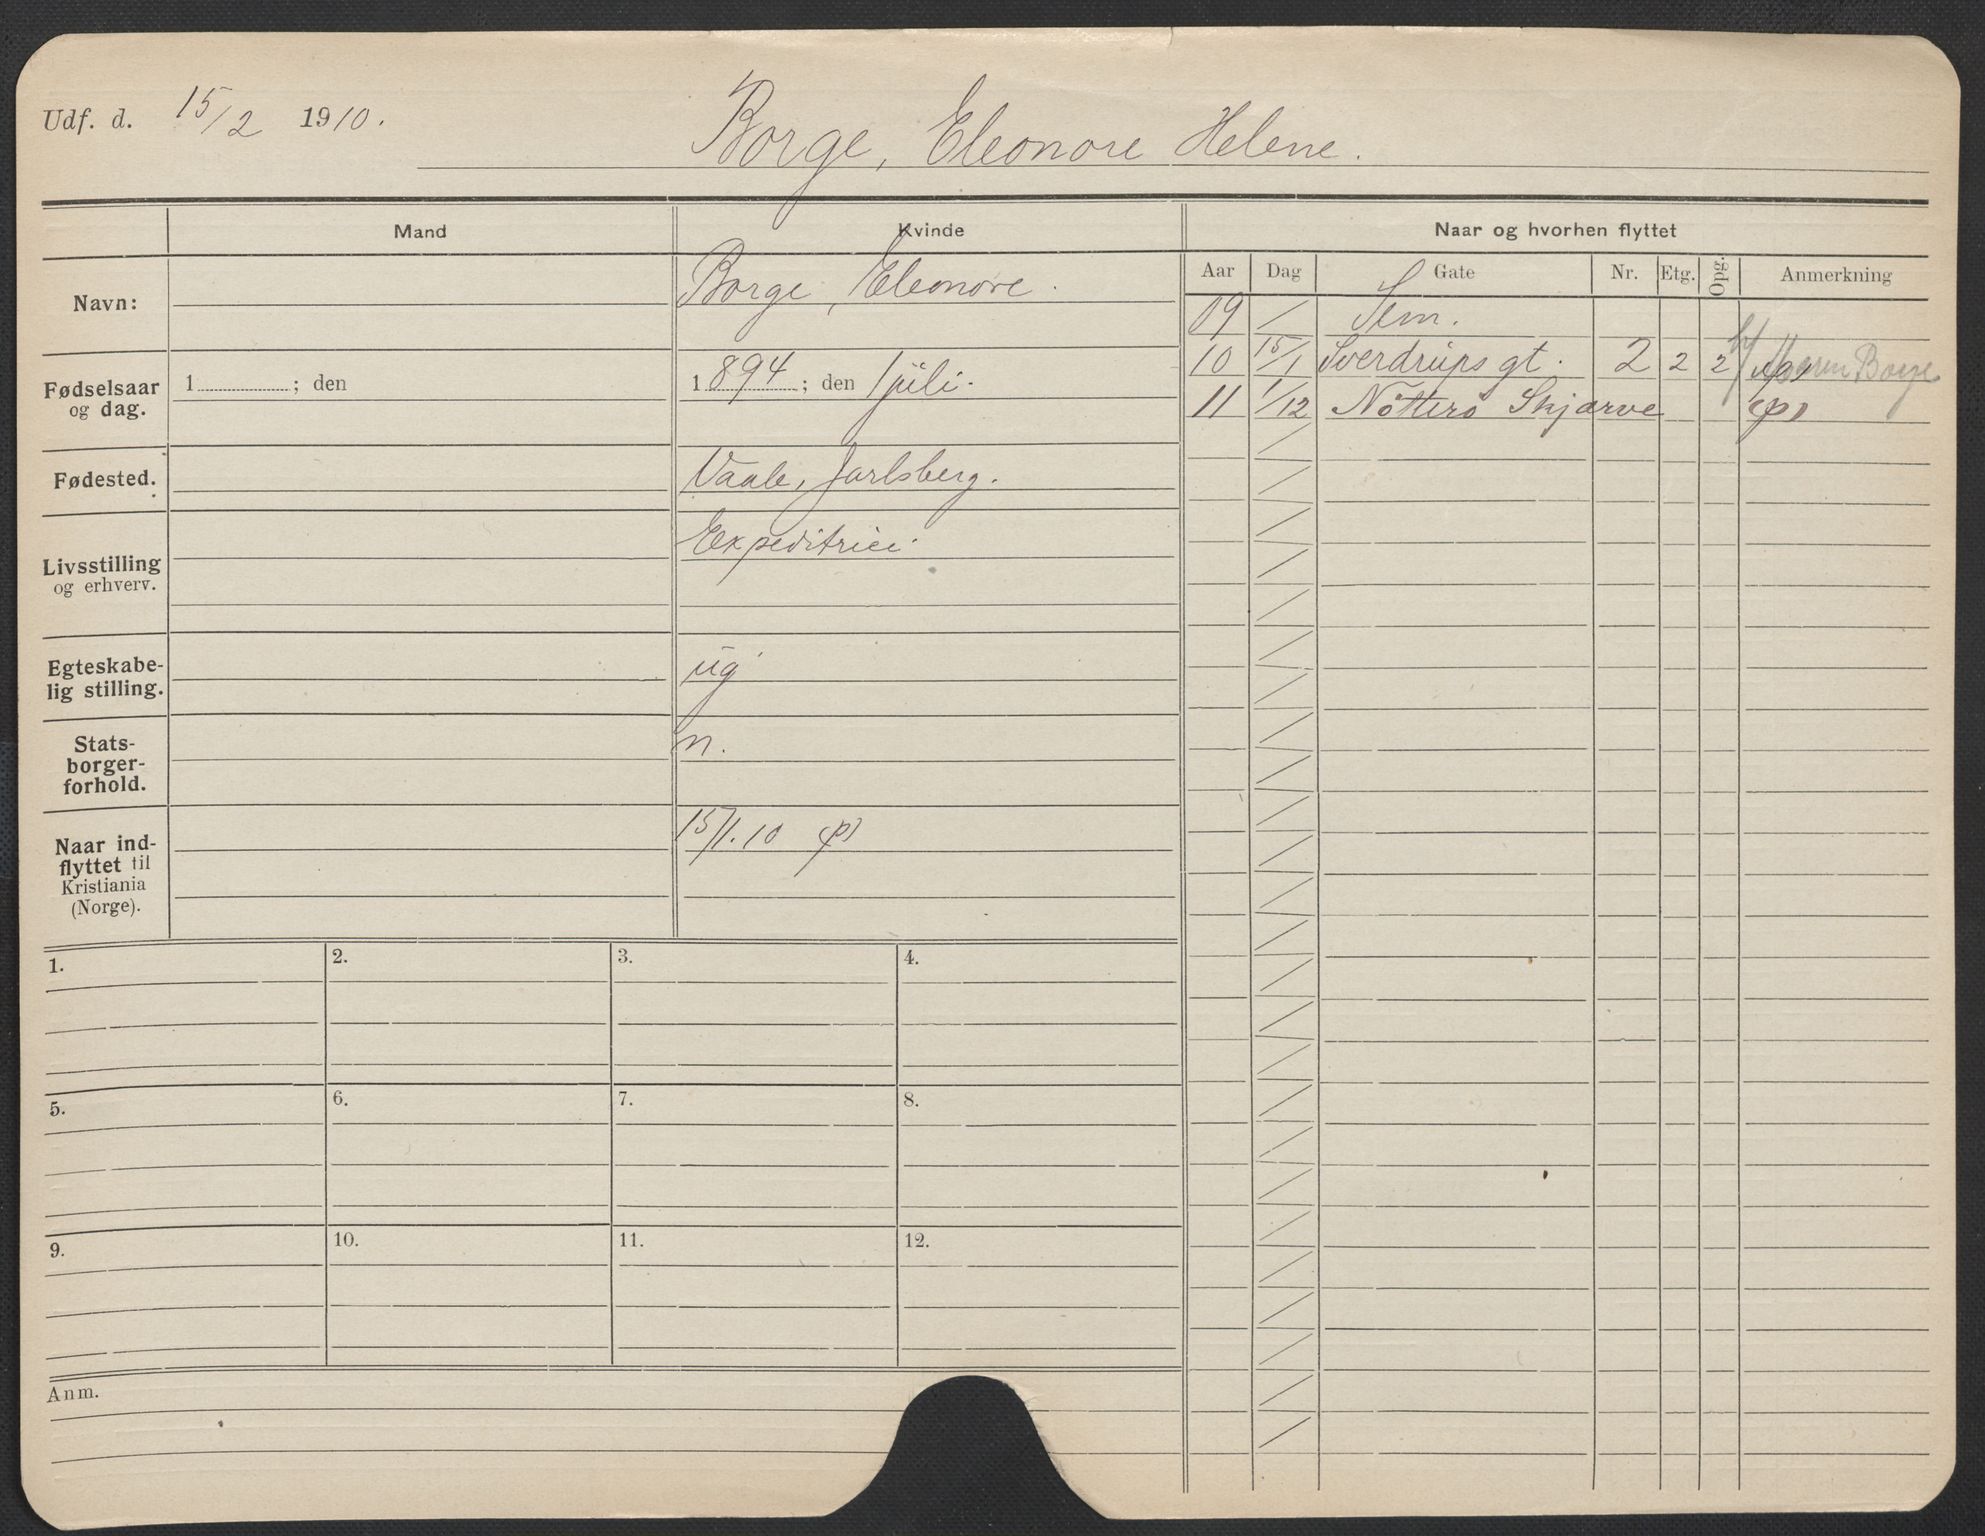 Udf. d. 15/2 1910.
Borge, Eleonore Helene.
Mand
Kvinde
Naar og hvorhen flyttet
Aar Dag Gate Nr. Etg. Opg. Anmerkning
Navn:
Borge, Eleonore.
09 / Sem.
10 15/1 Sverdrups gt. 2 2 2 b/ Maren Borge (p)
11 1/12 Nötterö Skjærve (p)
Fødselsaar
og dag.
1 ; den
1894 ; den 1 juli.
Fødested.
Vaale, Jarlsberg.
Livsstilling
og erhverv.
Expeditrice.
Egteskabe-
lig stilling.
ug
Stats-
borger-
forhold.
n.
Naar ind-
flyttet til
Kristiania
(Norge).
15/1.10 (p)
1. 2. 3. 4.
5. 6. 7. 8.
9. 10. 11. 12.
Anm.